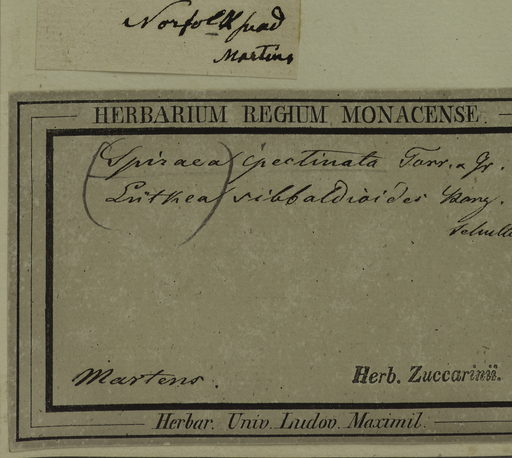 Norfolk Sund
Martins
HERBARIUM REGIUM MONACENSE.
(Spiraea) pectinata Torr. & Gr.
(Lütkea) sibbaldioides Bong.
Martens.
Herb. Zuccarinii.
Herbar. Univ. Ludov. Maximil.